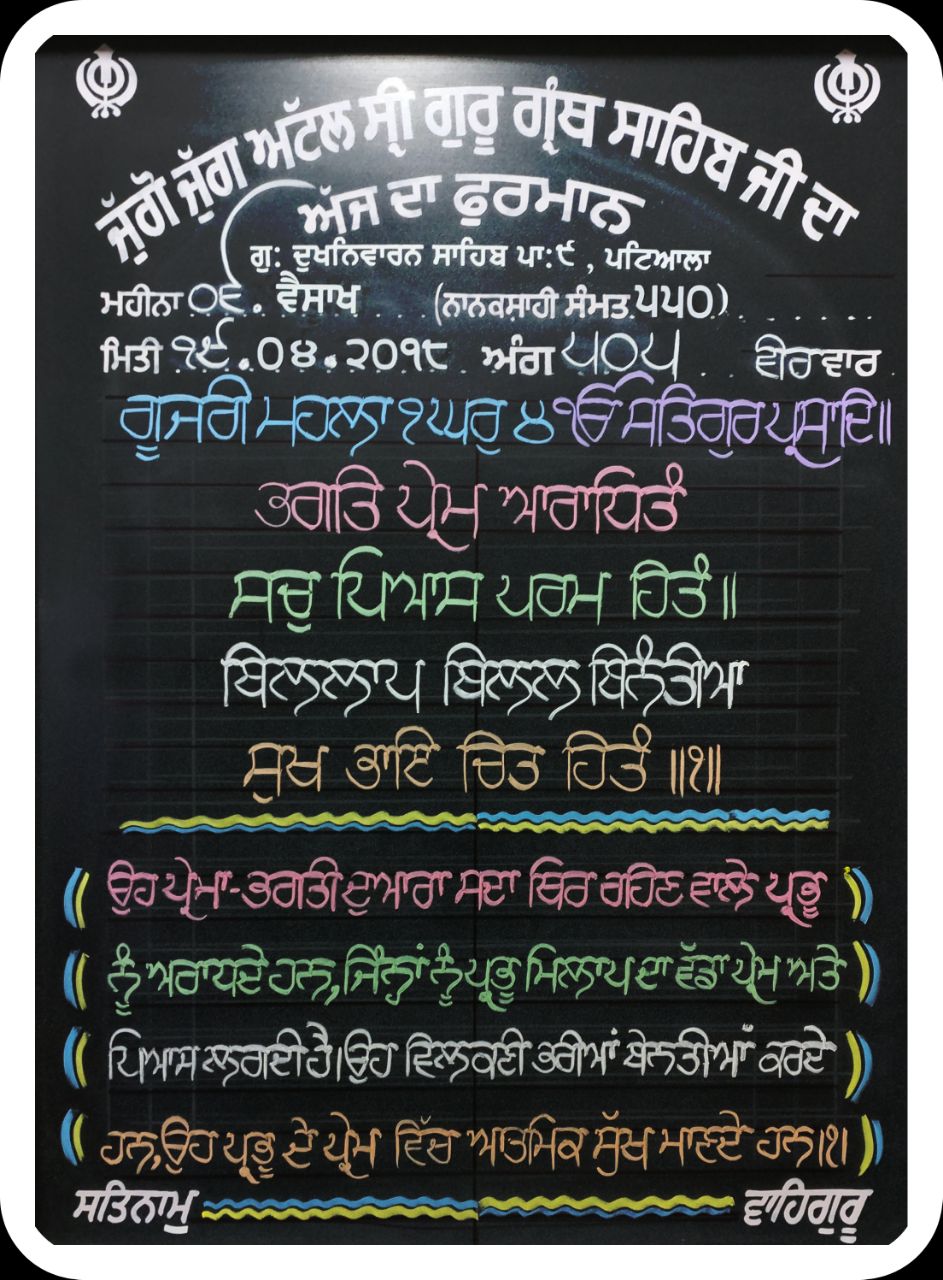 ਜੁੱਗੋ ਜੁੱਗ ਅਟੱਲ ਸ੍ਰੀ ਗੁਰੂ ਗ੍ਰੰਥ ਸਾਹਿਬ ਜੀ ਦਾ
ਅੱਜ ਦਾ ਫੁਰਮਾਨ
ਗੁ: ਦੁਖਨਿਵਾਰਨ ਸਾਹਿਬ ਪਾ:੯, ਪਟਿਆਲਾ
ਮਹੀਨਾ ੦੬. ਵੈਸਾਖ (ਨਾਨਕਸ਼ਾਹੀ ਸੰਮਤ ੫੫੦)
ਮਿਤੀ ੧੯.੦੪.੨੦੧੮ ਅੰਗ ੫੦੫ ਵੀਰਵਾਰ
ਗੂਜਰੀ ਮਹਲਾ ੧ ਘਰੁ ੪ ੴ ਸਤਿਗੁਰ ਪ੍ਰਸਾਦਿ॥
ਭਗਤਿ ਪ੍ਰੇਮ ਆਰਾਧਿਤੰ
ਸਚੁ ਪਿਆਸ ਪਰਮ ਹਿਤੰ॥
ਬਿਲਲਾਪ ਬਿਲਲ ਬਿਨੰਤੀਆ
ਸੁਖ ਭਾਇ ਚਿਤ ਹਿਤੰ॥੧॥
ਉਹ ਪ੍ਰੇਮਾ-ਭਗਤੀ ਦੁਆਰਾ ਸਦਾ ਥਿਰ ਰਹਿਣ ਵਾਲੇ ਪ੍ਰਭੂ
ਨੂੰ ਅਰਾਧਦੇ ਹਨ, ਜਿੰਨ੍ਹਾਂ ਨੂੰ ਪ੍ਰਭੂ ਮਿਲਾਪ ਦਾ ਵੱਡਾ ਪ੍ਰੇਮ ਅਤੇ
ਪਿਆਸ ਲਗਦੀ ਹੈ। ਉਹ ਵਿਲਕਣੀ ਭਰੀਆਂ ਬੇਨਤੀਆਂ ਕਰਦੇ
ਹਨ, ਉਹ ਪ੍ਰਭੂ ਦੇ ਪ੍ਰੇਮ ਵਿੱਚ ਆਤਮਿਕ ਸੁੱਖ ਮਾਣਦੇ ਹਨ।੧।
ਸਤਿਨਾਮੁ ਵਾਹਿਗੁਰੂ